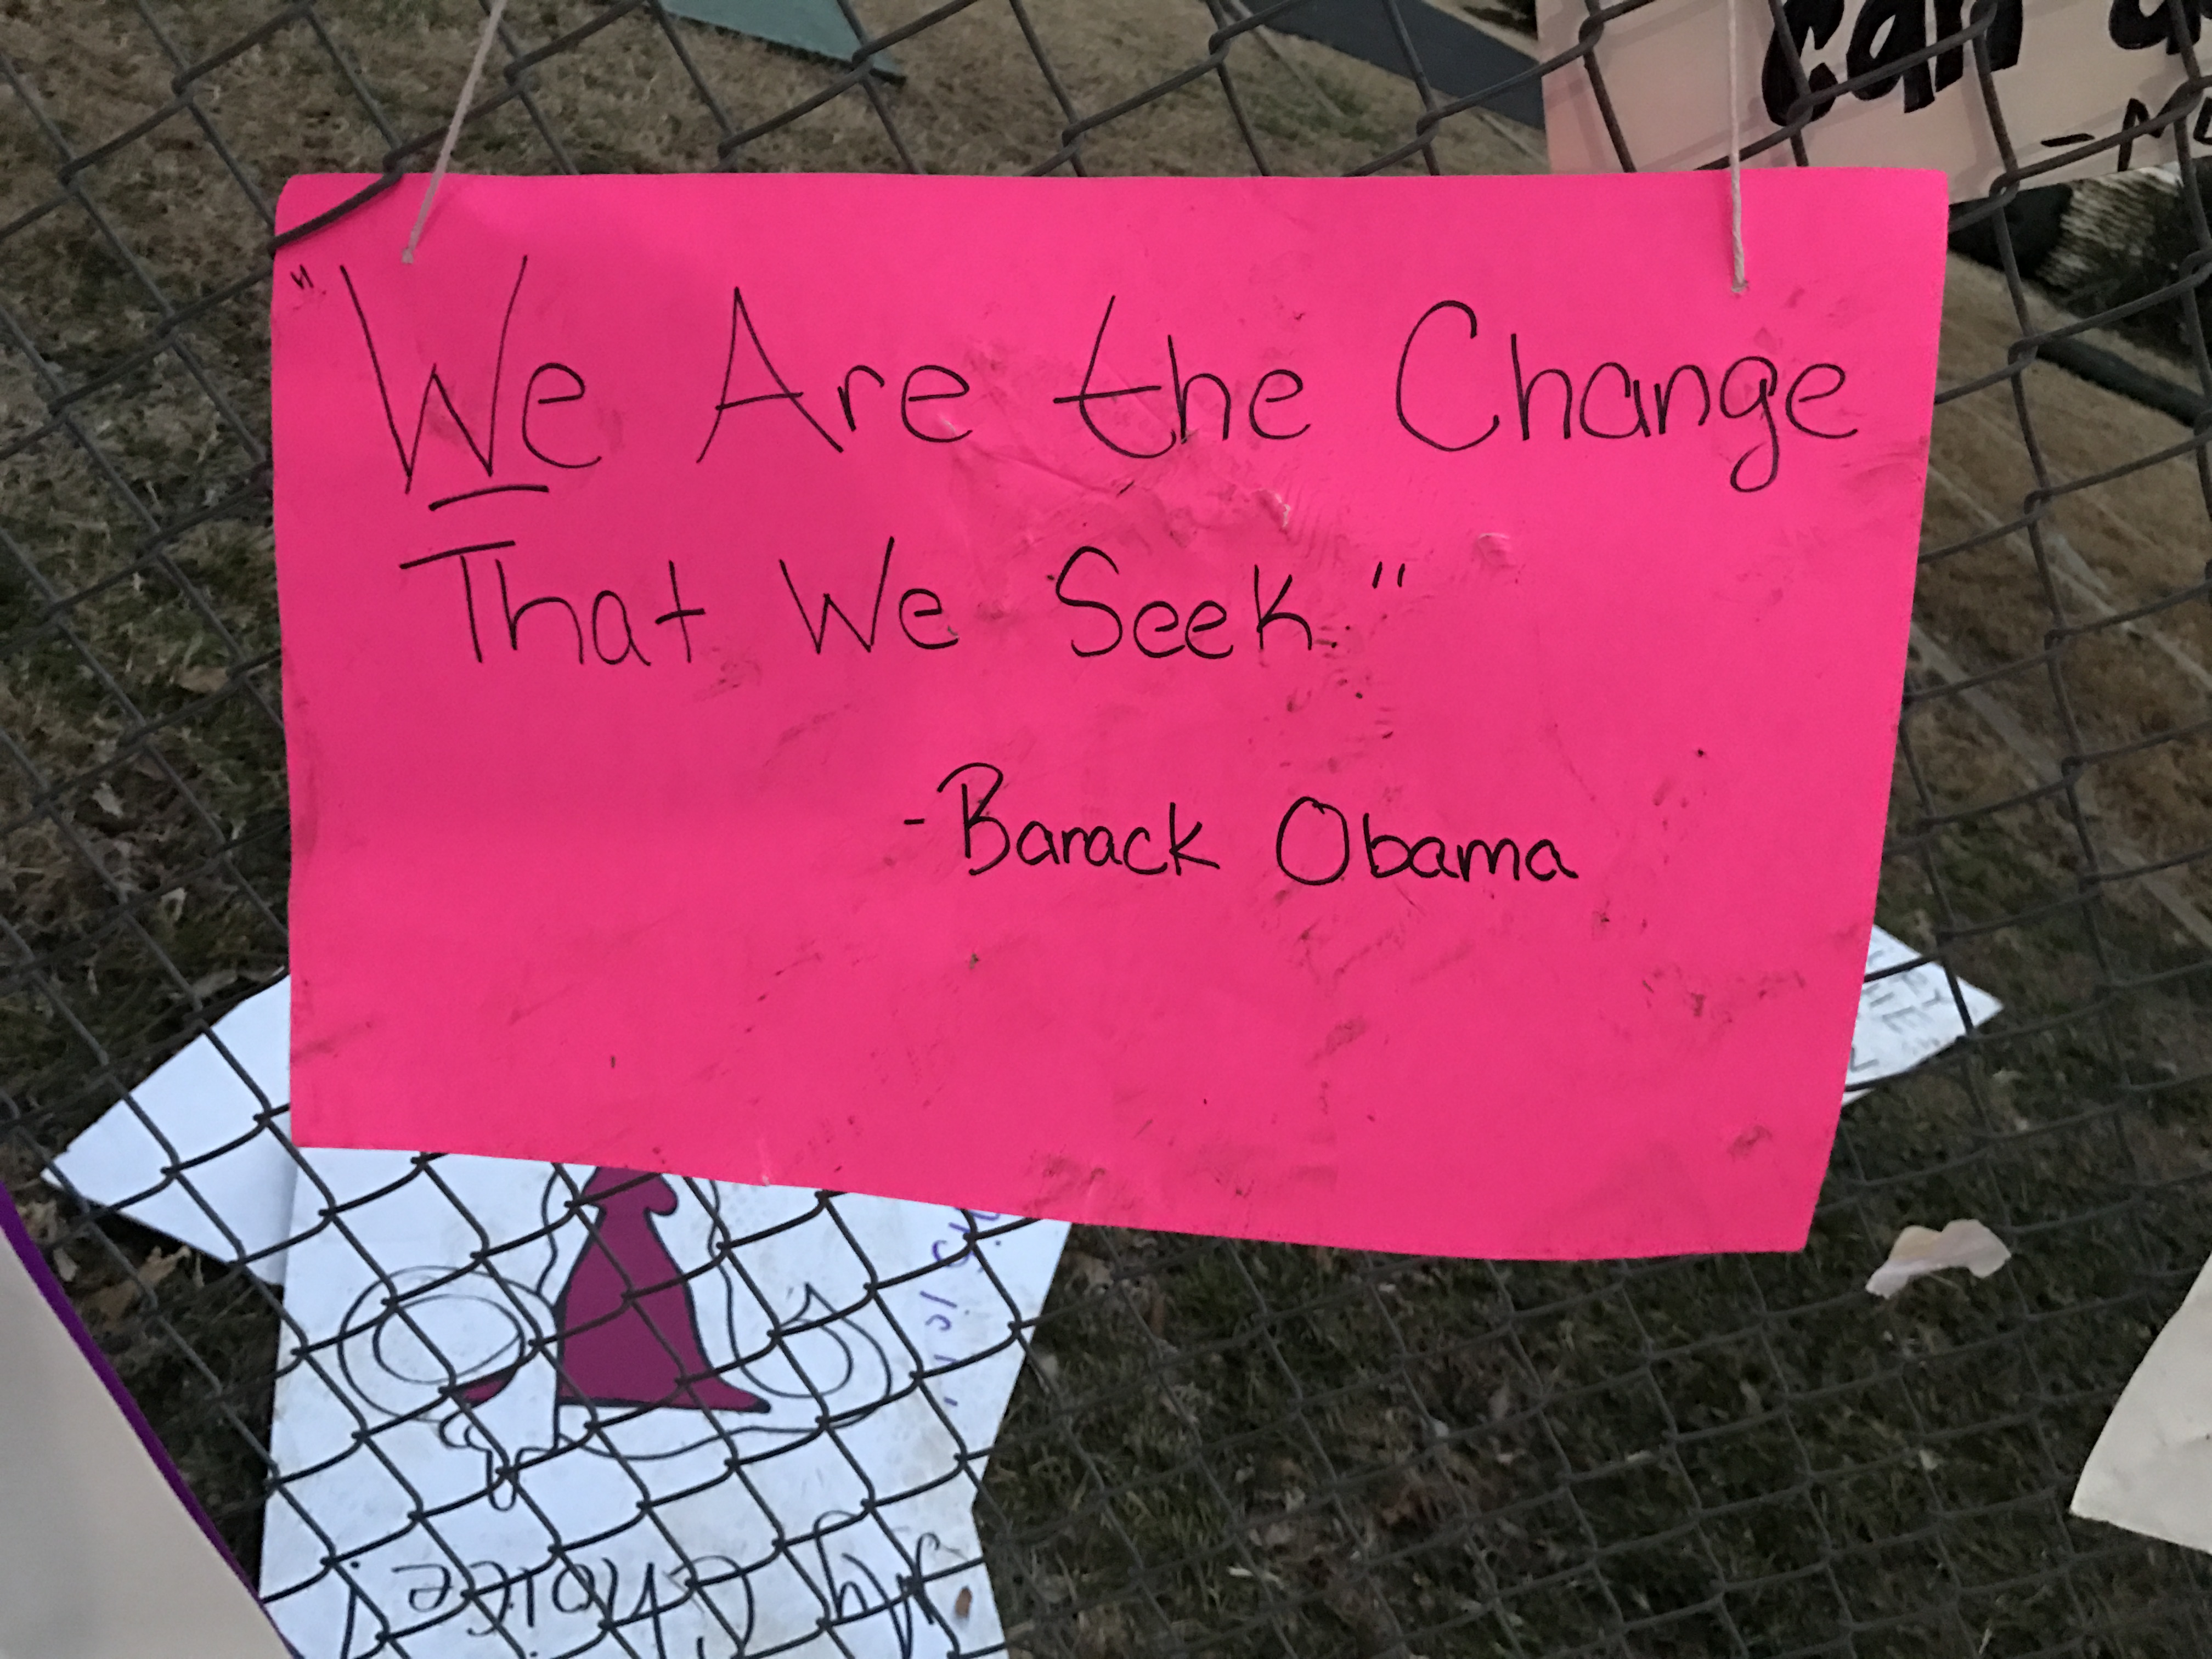 can
"We Are the Change
That We Seek."
-Barack Obama
My Choice!